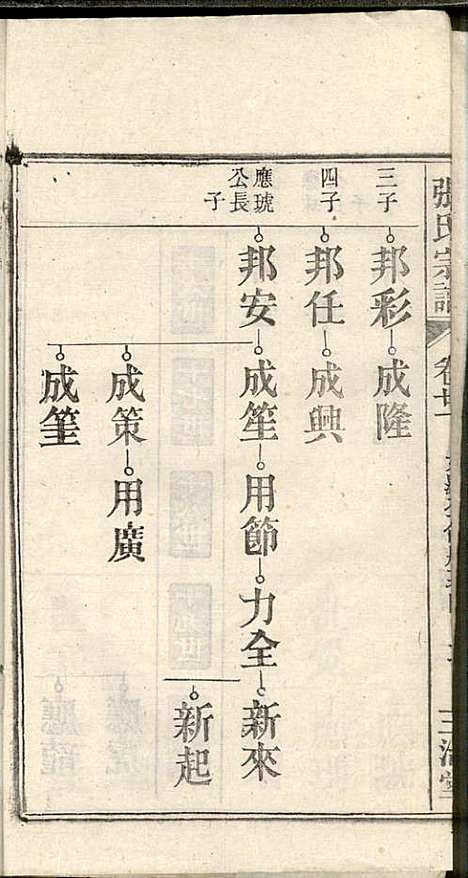 張氏宗譜
卷廿一
三子
邦彩 成隆
四子
邦任 成興
應琥公長子
邦安 成笙 用節 力全 新來
新起
成策 用廣
成筆